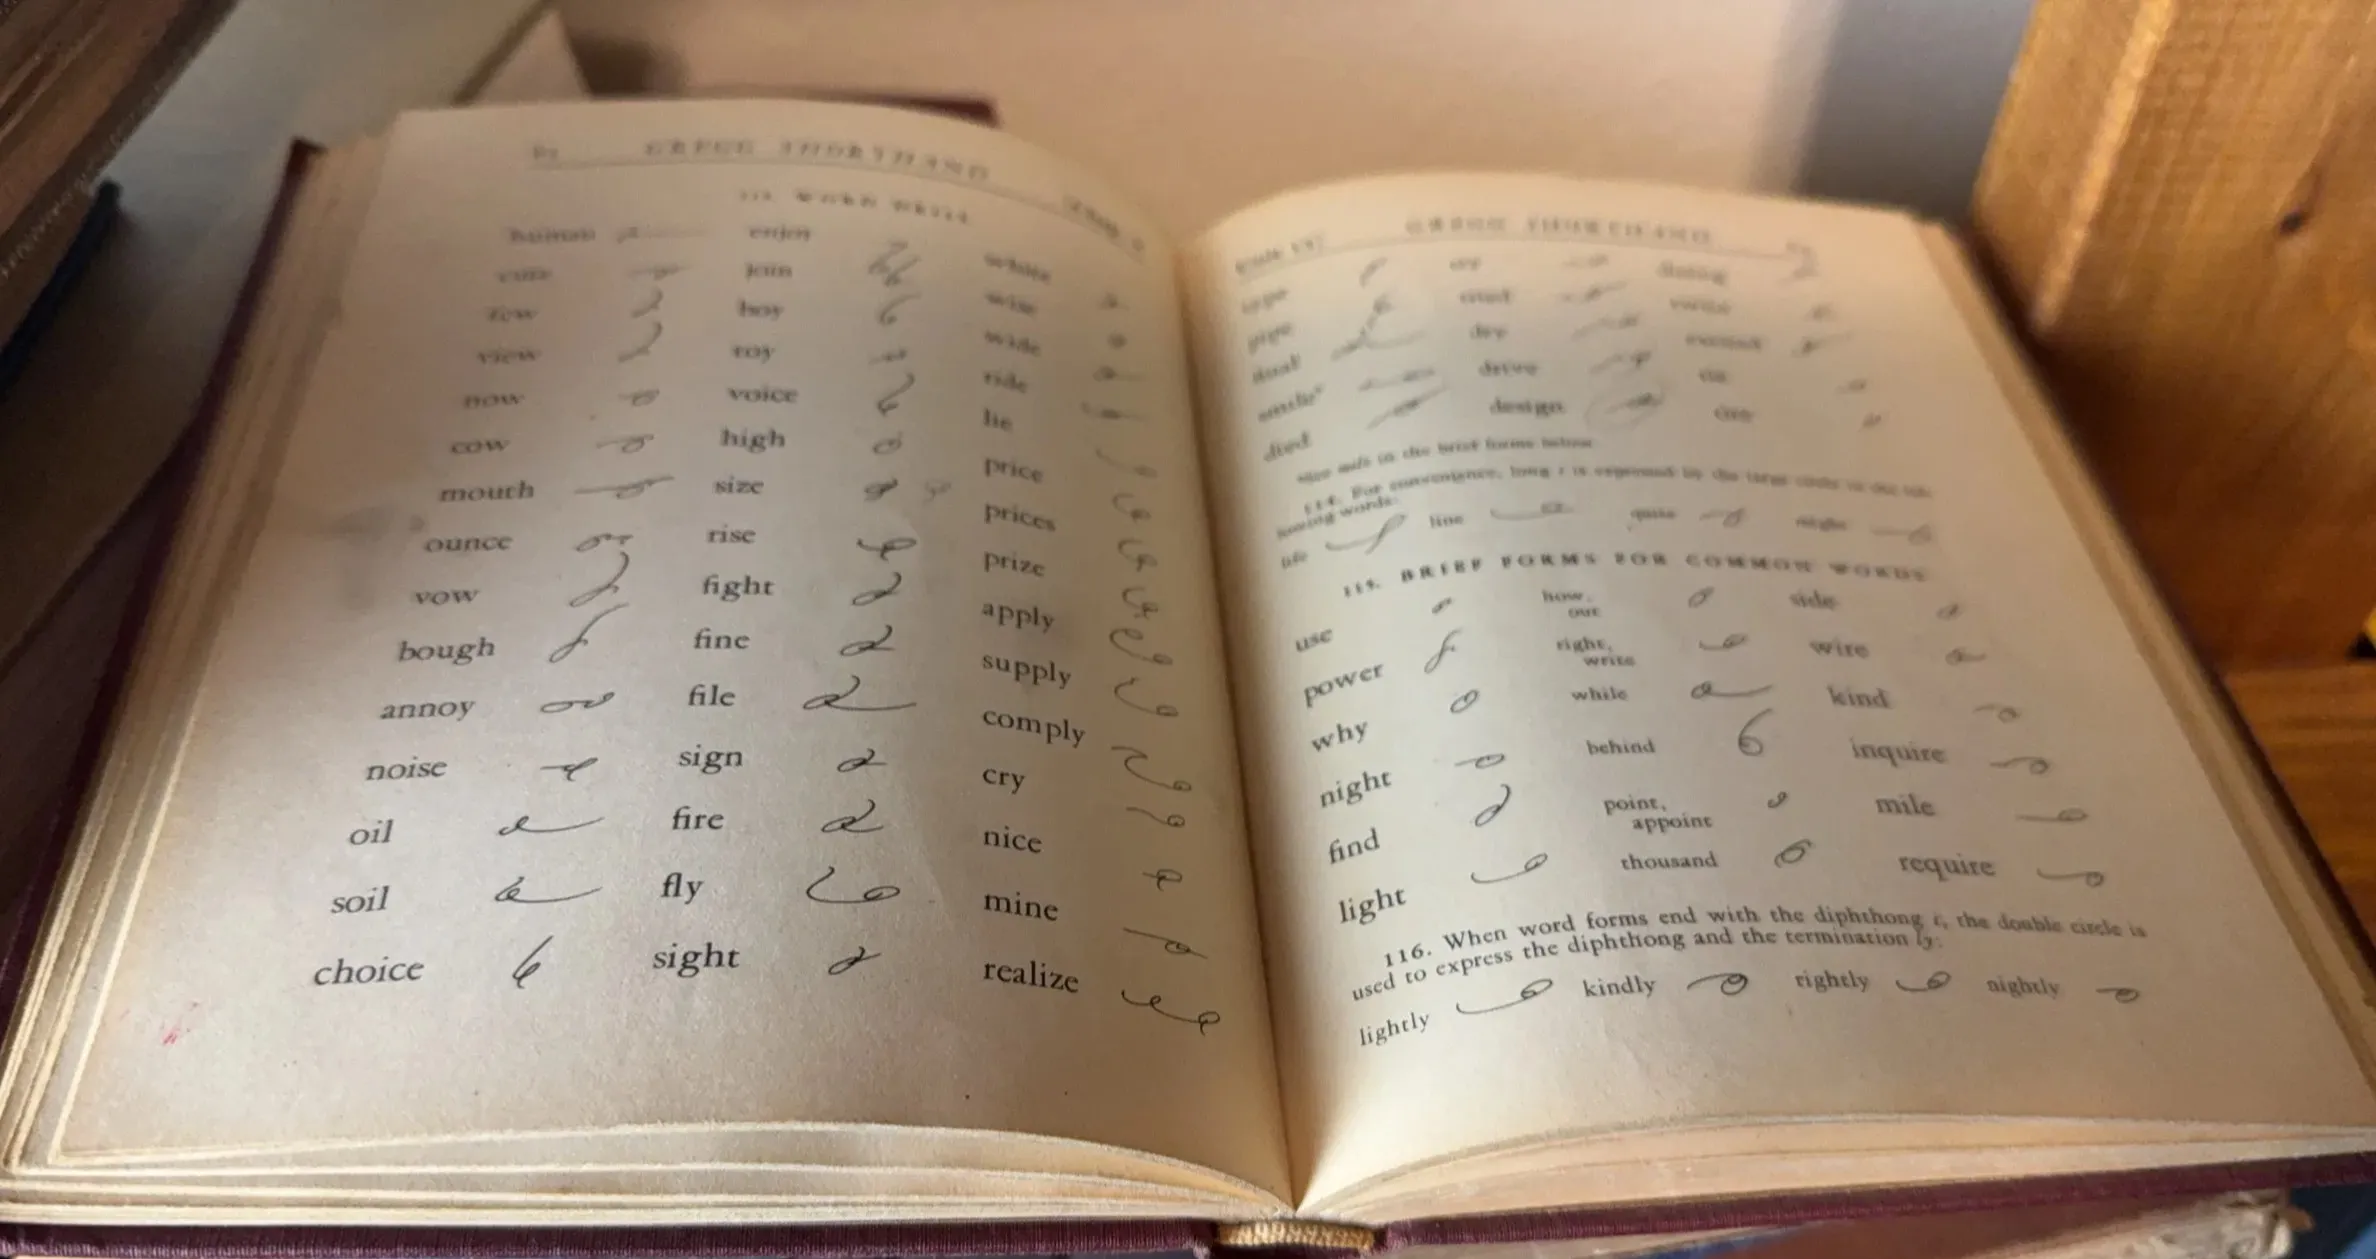 GREGG SHORTHAND
human enjoy white
cure join wise
few boy wide
view roy ride
now voice lie
cow high price
mouth size prices
ounce rise prize
vow fight apply
bough fine supply
annoy file comply
noise sign cry
oil fire nice
soil fly mine
choice sight realize
GREGG SHORTHAND
type
pipe
dry
smile drive
died design
in the brief forms below
114. For convenience, long i is expressed by the large circle in the fol-
lowing words:
life line quite might
115. BRIEF FORMS FOR COMMON WORDS
use how, out side
power right, write wire
why while kind
night behind inquire
find point, appoint mile
light thousand require
116. When word forms end with the diphthong i, the double circle is
used to express the diphthong and the termination ly:
lightly kindly rightly nightly